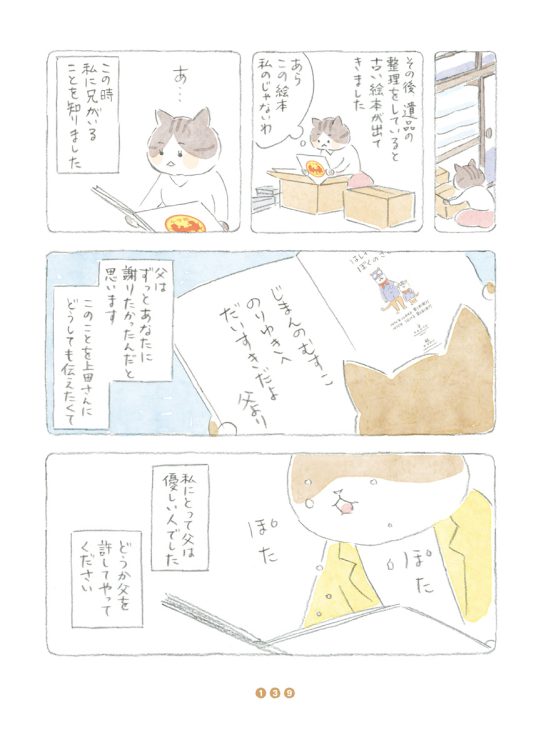 その後 遺品の
整理をしていると
古い絵本が出て
きました
あら
この絵本
私のじゃないわ
あ…
この時
私に兄がいる
ことを知りました
ぼくのさ
じまんのむすこ
のりゆきへ
だいすきだよ
父より
父は
ずっとあなたに
謝りたかったんだと
思います
このことを上田さんに
どうしても伝えたくて
ぽた
ぽた
私にとって父は
優しい人でした
どうか父を
許してやって
ください
139